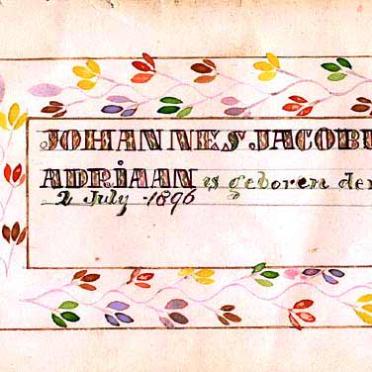 JOHANNES JACOBU
ADRIAAN is geboren den
2 July 1896